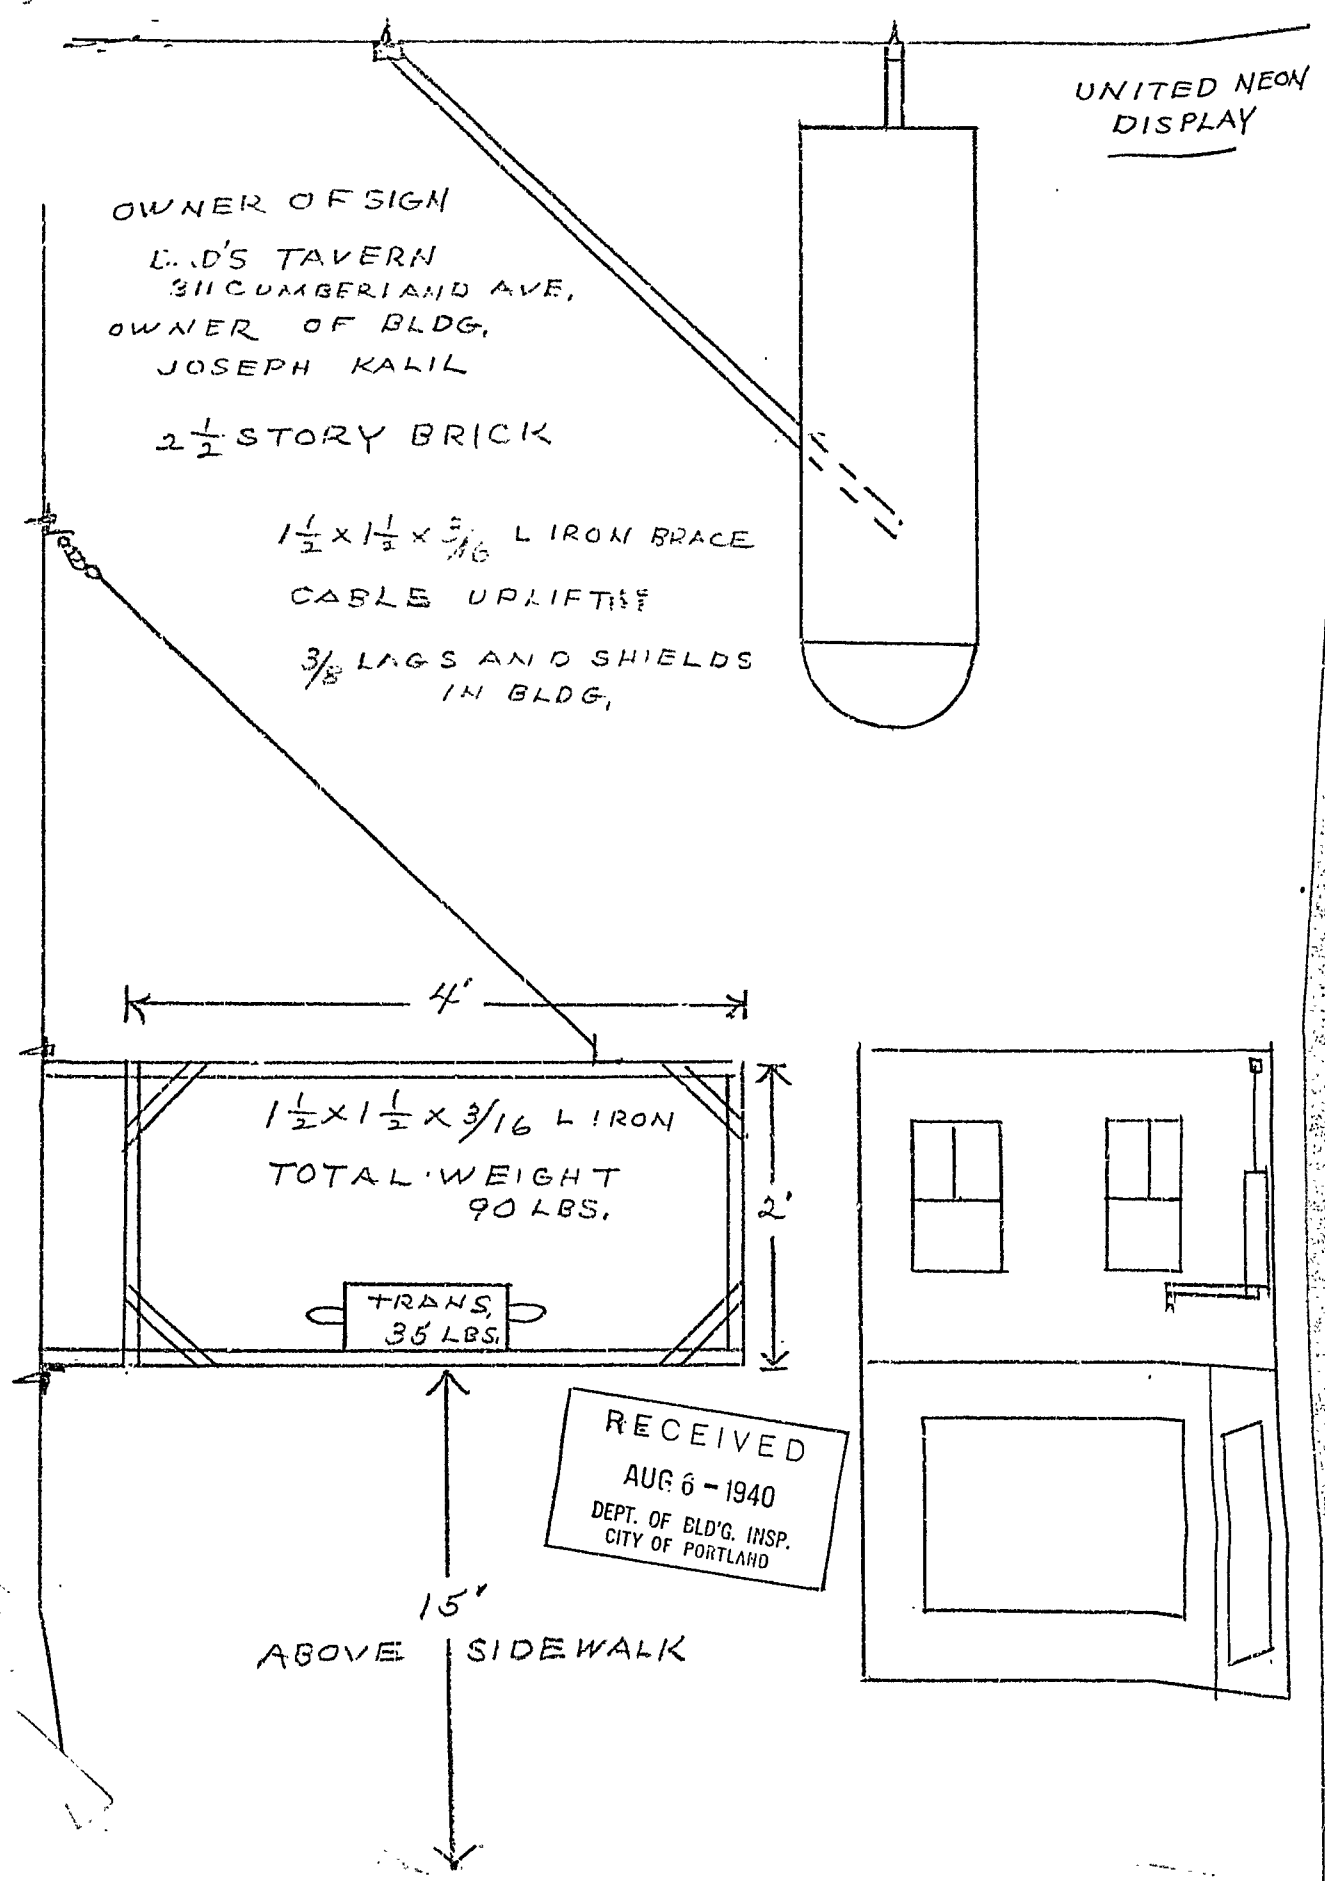 UNITED NEON
DISPLAY
OWNER OF SIGN
TAVERN
311 CUMBERLAND AVE.
OWNER OF BLDG.
JOSEPH KALIL
2 1/2 STORY BRICK
1 1/2 x 1 1/2 x 3/16 L IRON BRACE
CABLE
3/8 LAGS AND SHIELDS
IN BLDG.
4'
1 1/2 x 1 1/2 x 3/16 L IRON
TOTAL WEIGHT
90 LBS.
2'
TRANS.
35 LBS.
RECEIVED
AUG 6 - 1940
DEPT. OF BLD'G. INSP.
CITY OF PORTLAND
15'
ABOVE SIDEWALK